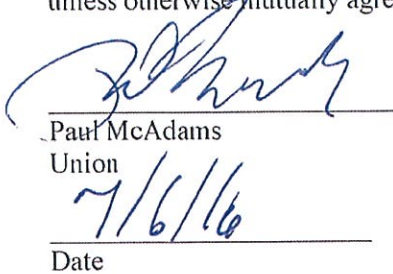 unless otherwise mutually agre
Paul McAdams
Union
7/6/16
Date